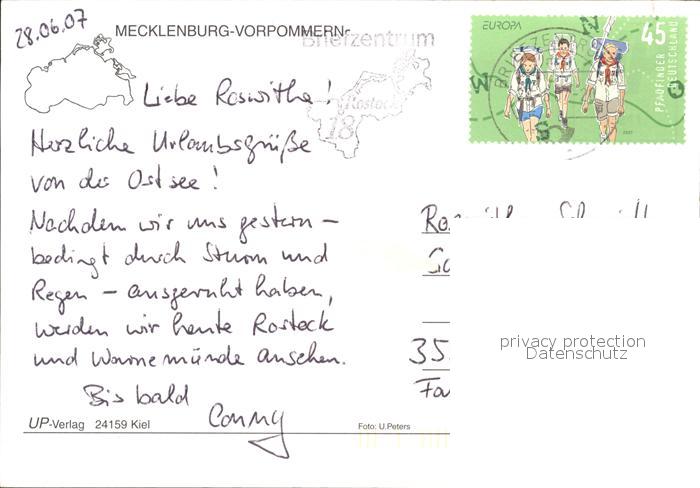 28.06.07
MECKLENBURG-VORPOMMERN
Briefzentrum
Rostock
18
EUROPA
45
PFADFINDER
DEUTSCHLAND
2007
N
W
O
S
Liebe Roswitha!
Herzliche Urlaubsgrüße
von der Ostsee!
Nachdem wir uns gestern –
bedingt durch Sturm und
Regen – ausgeruht haben,
werden wir heute Rostock
und Warnemünde ansehen.
Bis bald
Conny
35
privacy protection
Datenschutz
UP-Verlag 24159 Kiel
Foto: U.Peters